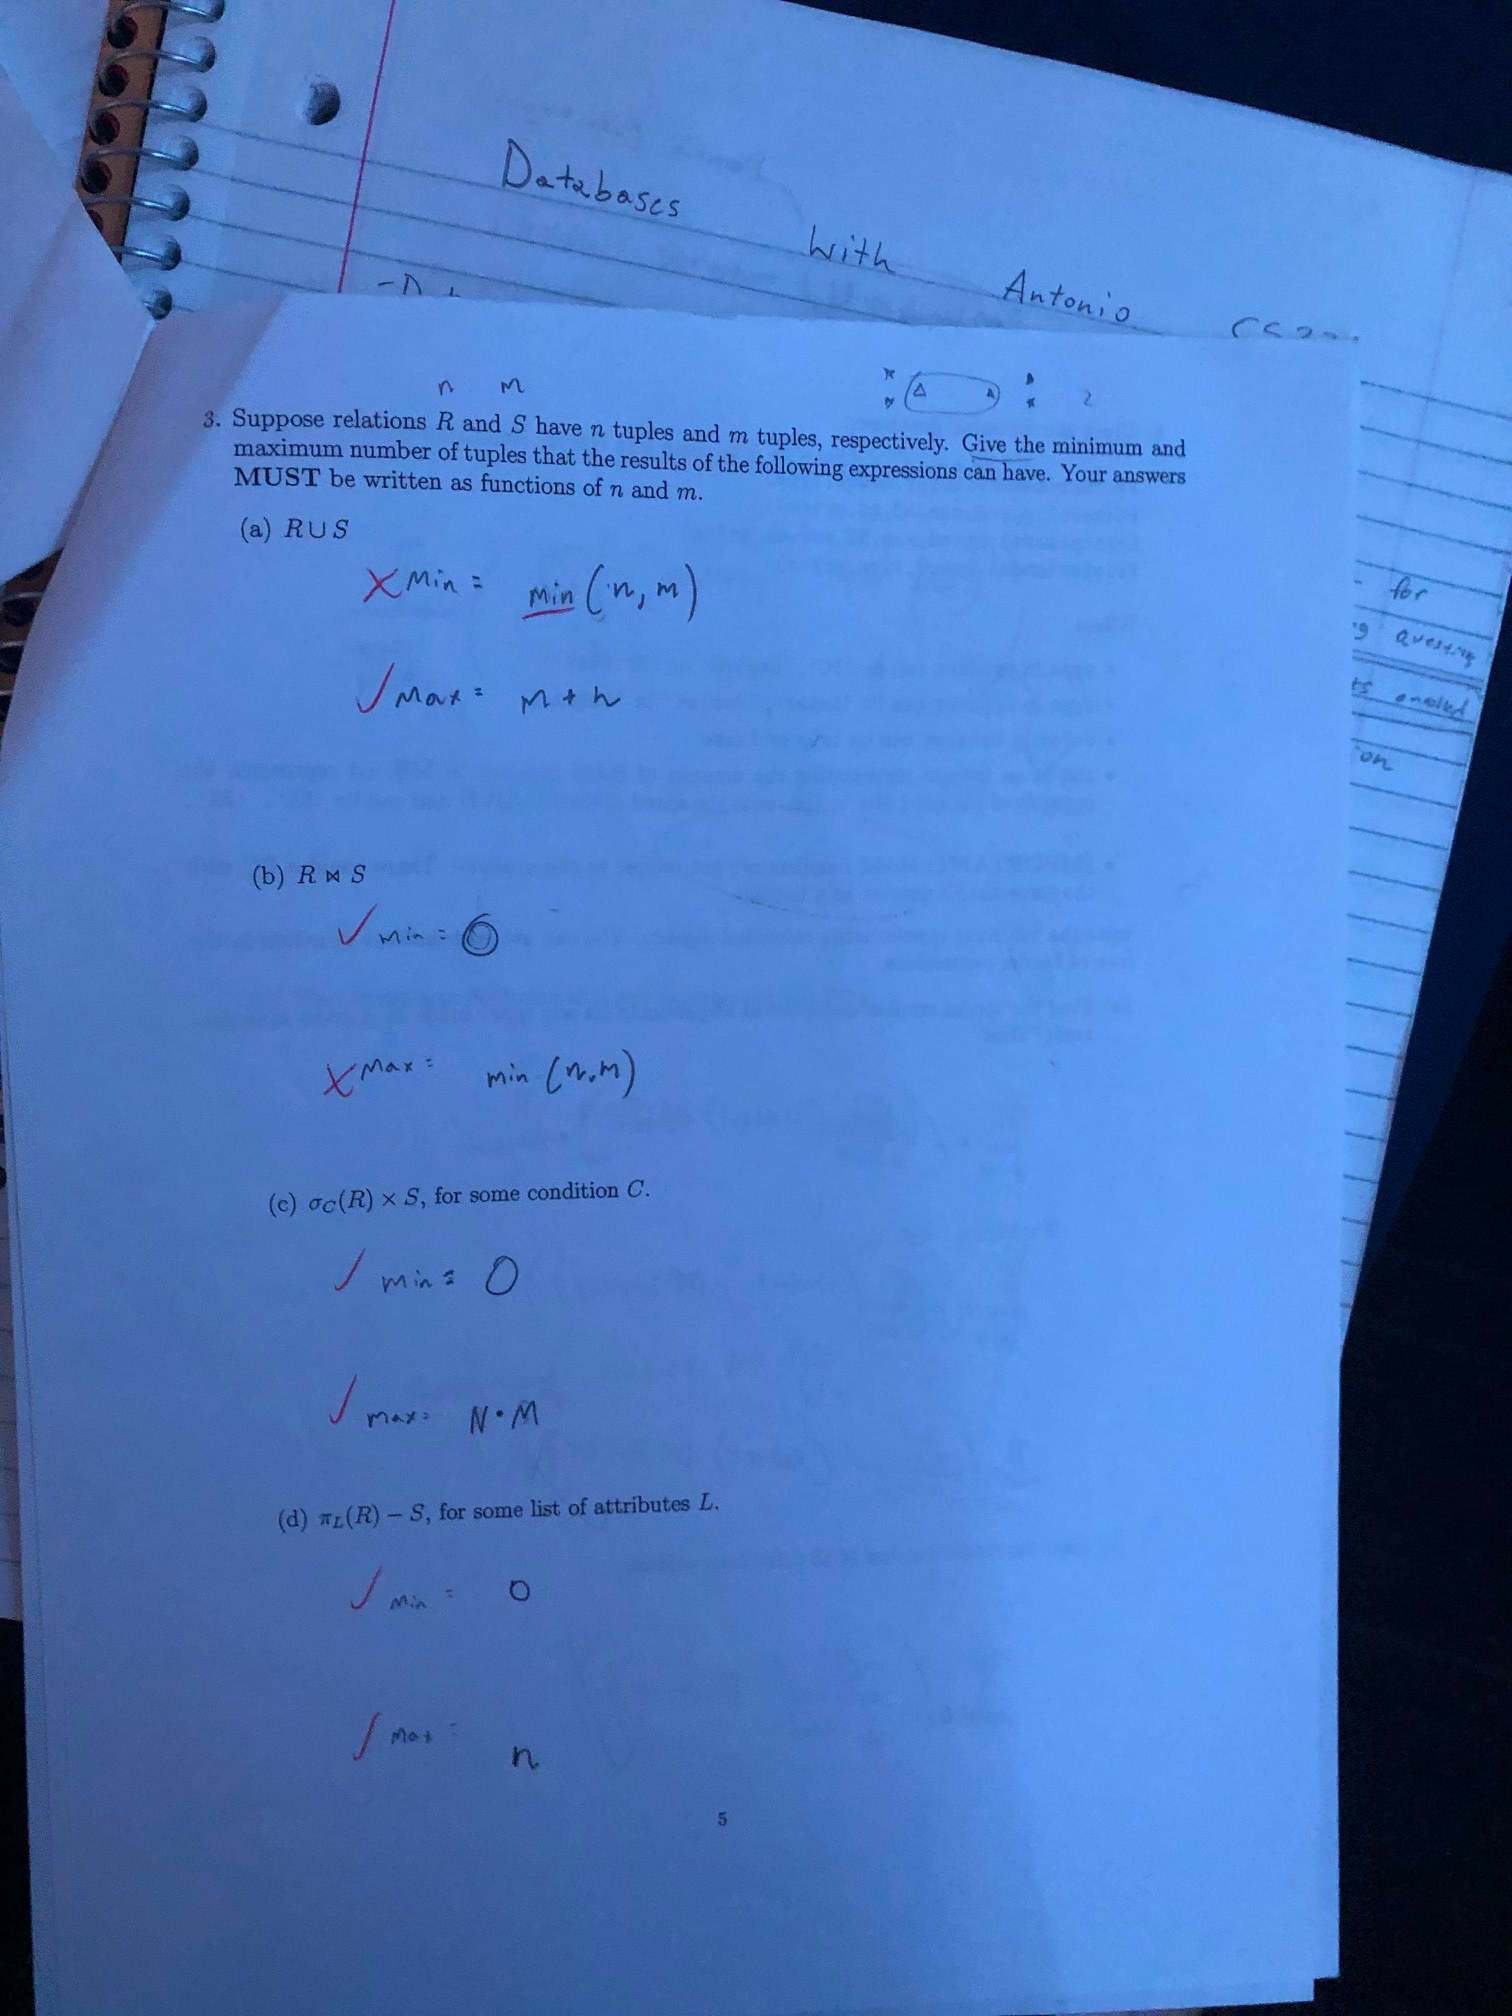 Databases with Antonio
n m
3. Suppose relations R and S have n tuples and m tuples, respectively. Give the minimum and
maximum number of tuples that the results of the following expressions can have. Your answers
MUST be written as functions of n and m.
(a) R ∪ S
✗ Min = min (n, m)
✓ Max = m + n
(b) R ⋈ S
✓ min = 0
✗ Max = min (n, m)
(c) σC(R) × S, for some condition C.
✓ min = 0
✓ max = N • M
(d) πL(R) − S, for some list of attributes L.
✓ Min = 0
✓ Max = n
5
for
on